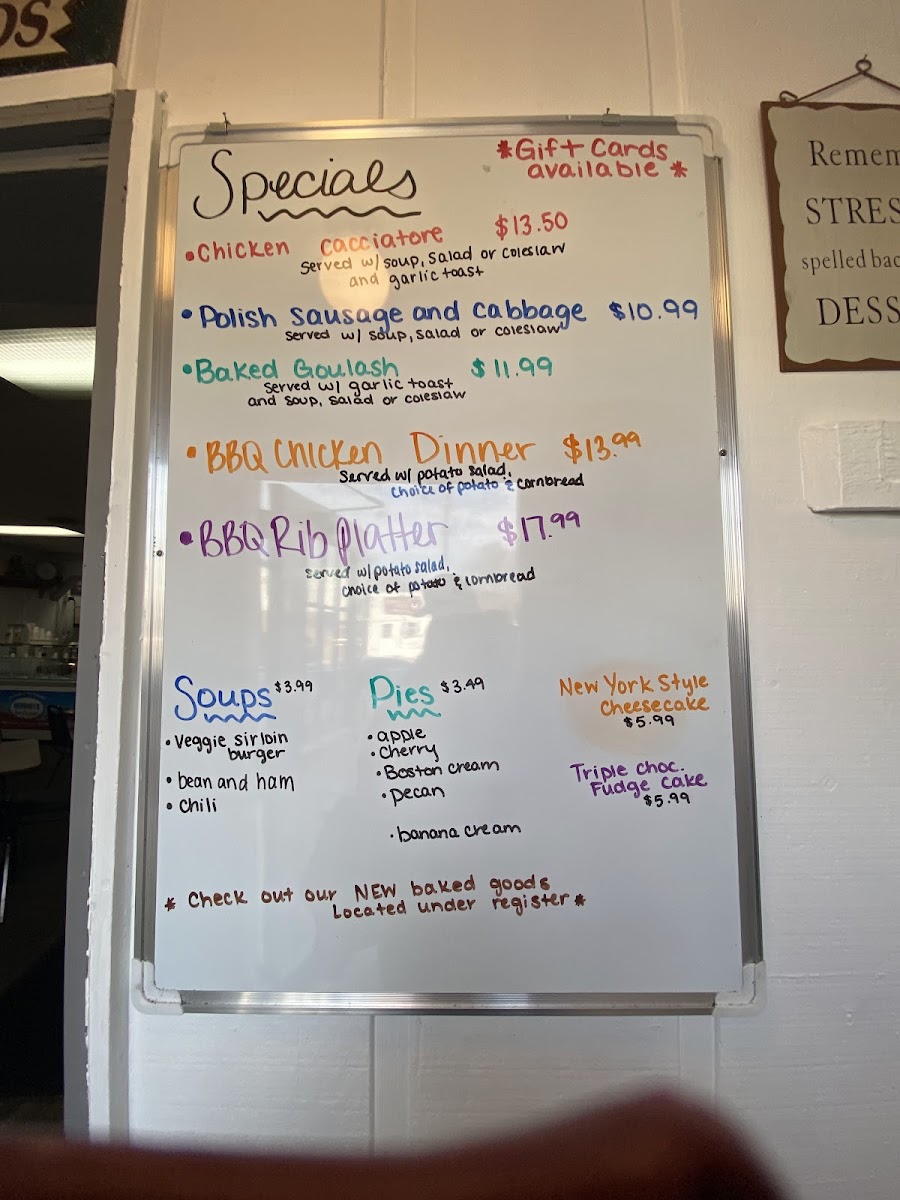 Specials
*Gift Cards
available *
•Chicken cacciatore $13.50
served w/ soup, salad or coleslaw
and garlic toast
•Polish sausage and cabbage $10.99
served w/ soup, salad or coleslaw
•Baked Goulash $11.99
served w/ garlic toast
and soup, salad or coleslaw
•BBQ Chicken Dinner $13.99
served w/ potato salad,
choice of potato & cornbread
•BBQ Rib Platter $17.99
served w/ potato salad,
choice of potato & cornbread
Soups $3.99
•Veggie sirloin
burger
•bean and ham
•chili
Pies $3.49
•apple
•cherry
•Boston cream
•pecan
•banana cream
New York Style
Cheesecake
$5.99
Triple choc.
Fudge Cake
$5.99
* Check out our NEW baked goods
Located under register*
Remem
STRES
spelled bac
DESS
OS